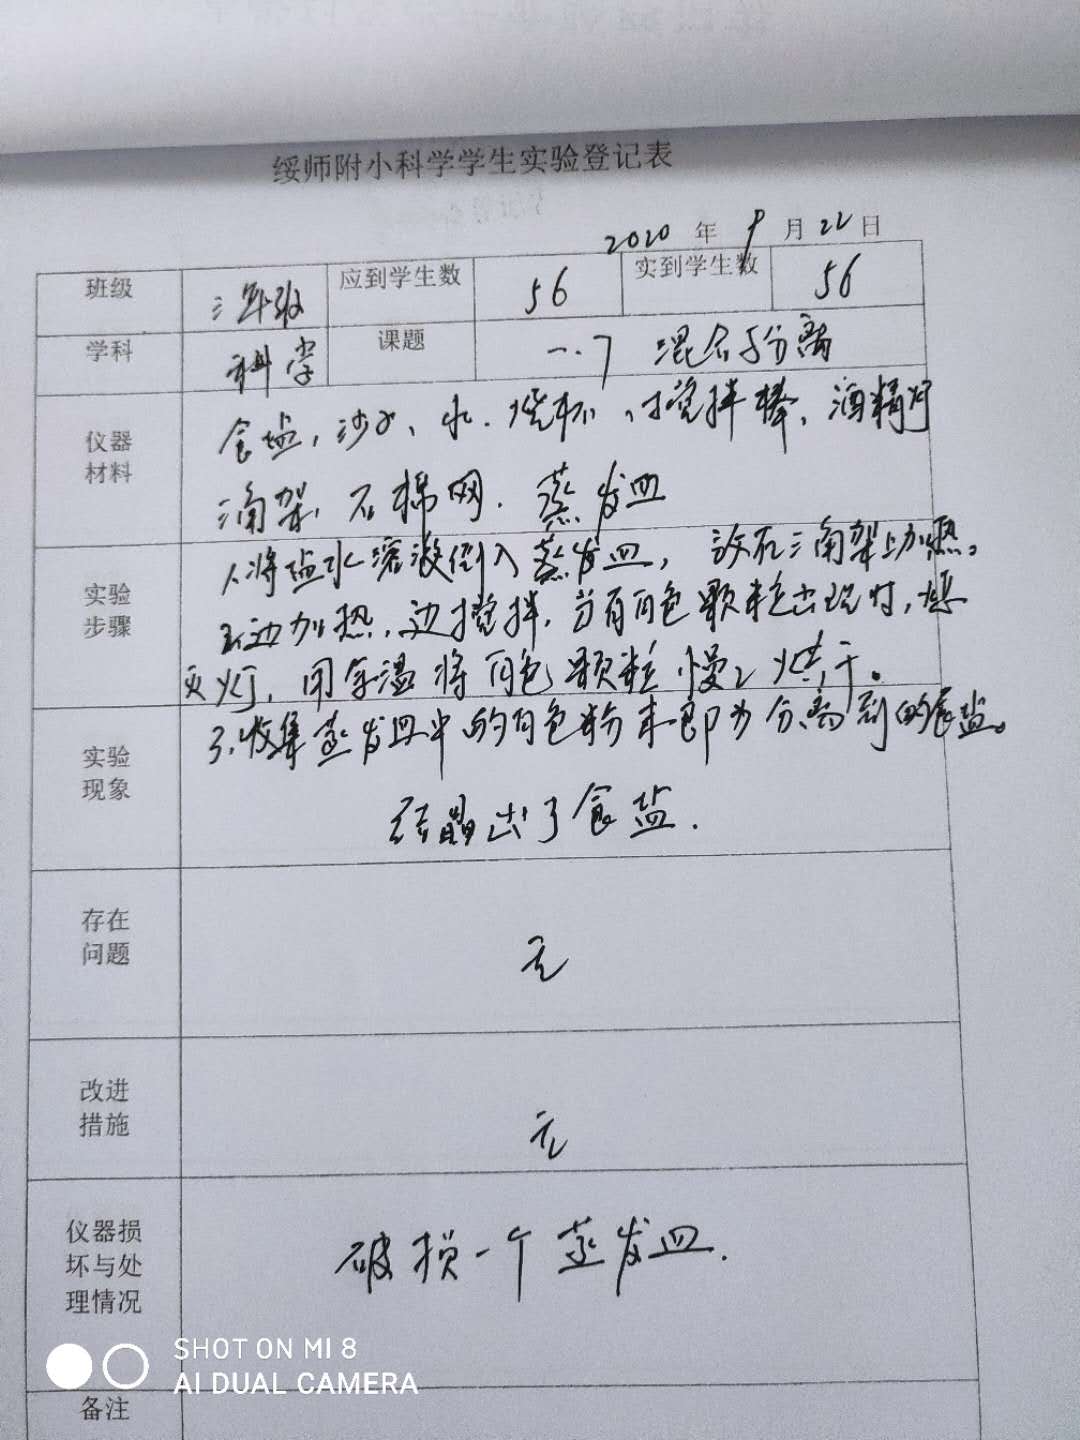 绥师附小科学学生实验登记表
2020 年 9 月 22 日
班级 三年级 应到学生数 56 实到学生数 56
学科 科学 课题 一.7 混合与分离
仪器材料 食盐,沙子、水.烧杯、搅拌棒、酒精灯
三角架、石棉网.蒸发皿
实验步骤 1、将盐水溶液倒入蒸发皿,放在三角架上加热。
2、边加热,边搅拌,当有白色颗粒出现时,熄
灭灯,用余温将白色颗粒慢慢烘干。
3、收集蒸发皿中的白色粉末即为分离到的食盐。
实验现象 结晶出了食盐.
存在问题 无
改进措施 无
仪器损坏与处理情况 破损一个蒸发皿.
备注
SHOT ON MI 8
AI DUAL CAMERA